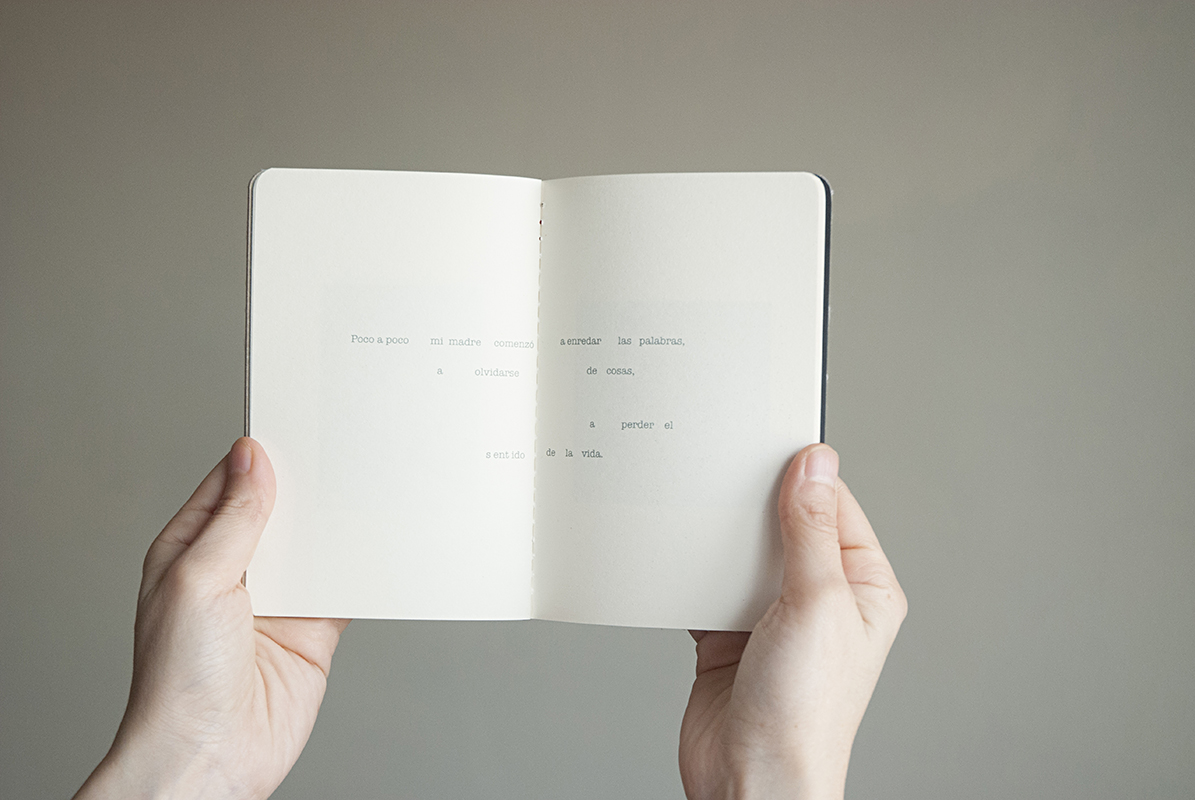 Poco a poco mi madre comenzó a enredar las palabras,
a olvidarse de cosas,
a perder el
sentido de la vida.